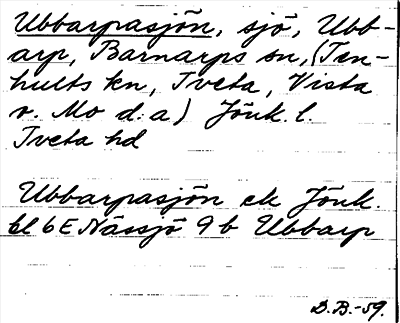 Ubbarpasjön, sjö, Ubb-
arp, Barnarps sn, (Ten-
hults kn, Tveta, Vista
o. Mo d:a) Jönk. l.
Tveta hd
Ubbarpasjön ek Jönk.
bl 6E Nässjö 9b Ubbarp
D.B.-59.